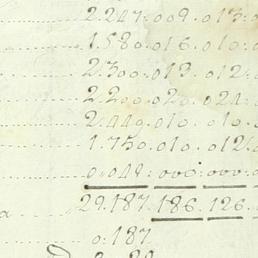 2.247:009.:013:
1.580.:016.:010.:
2.300:.013.:012:
2.200:.020.:024.
2.440:010.:010.
1.750.:010.:012.
0.048:000:000:
a 29.187.186.126.
0:187